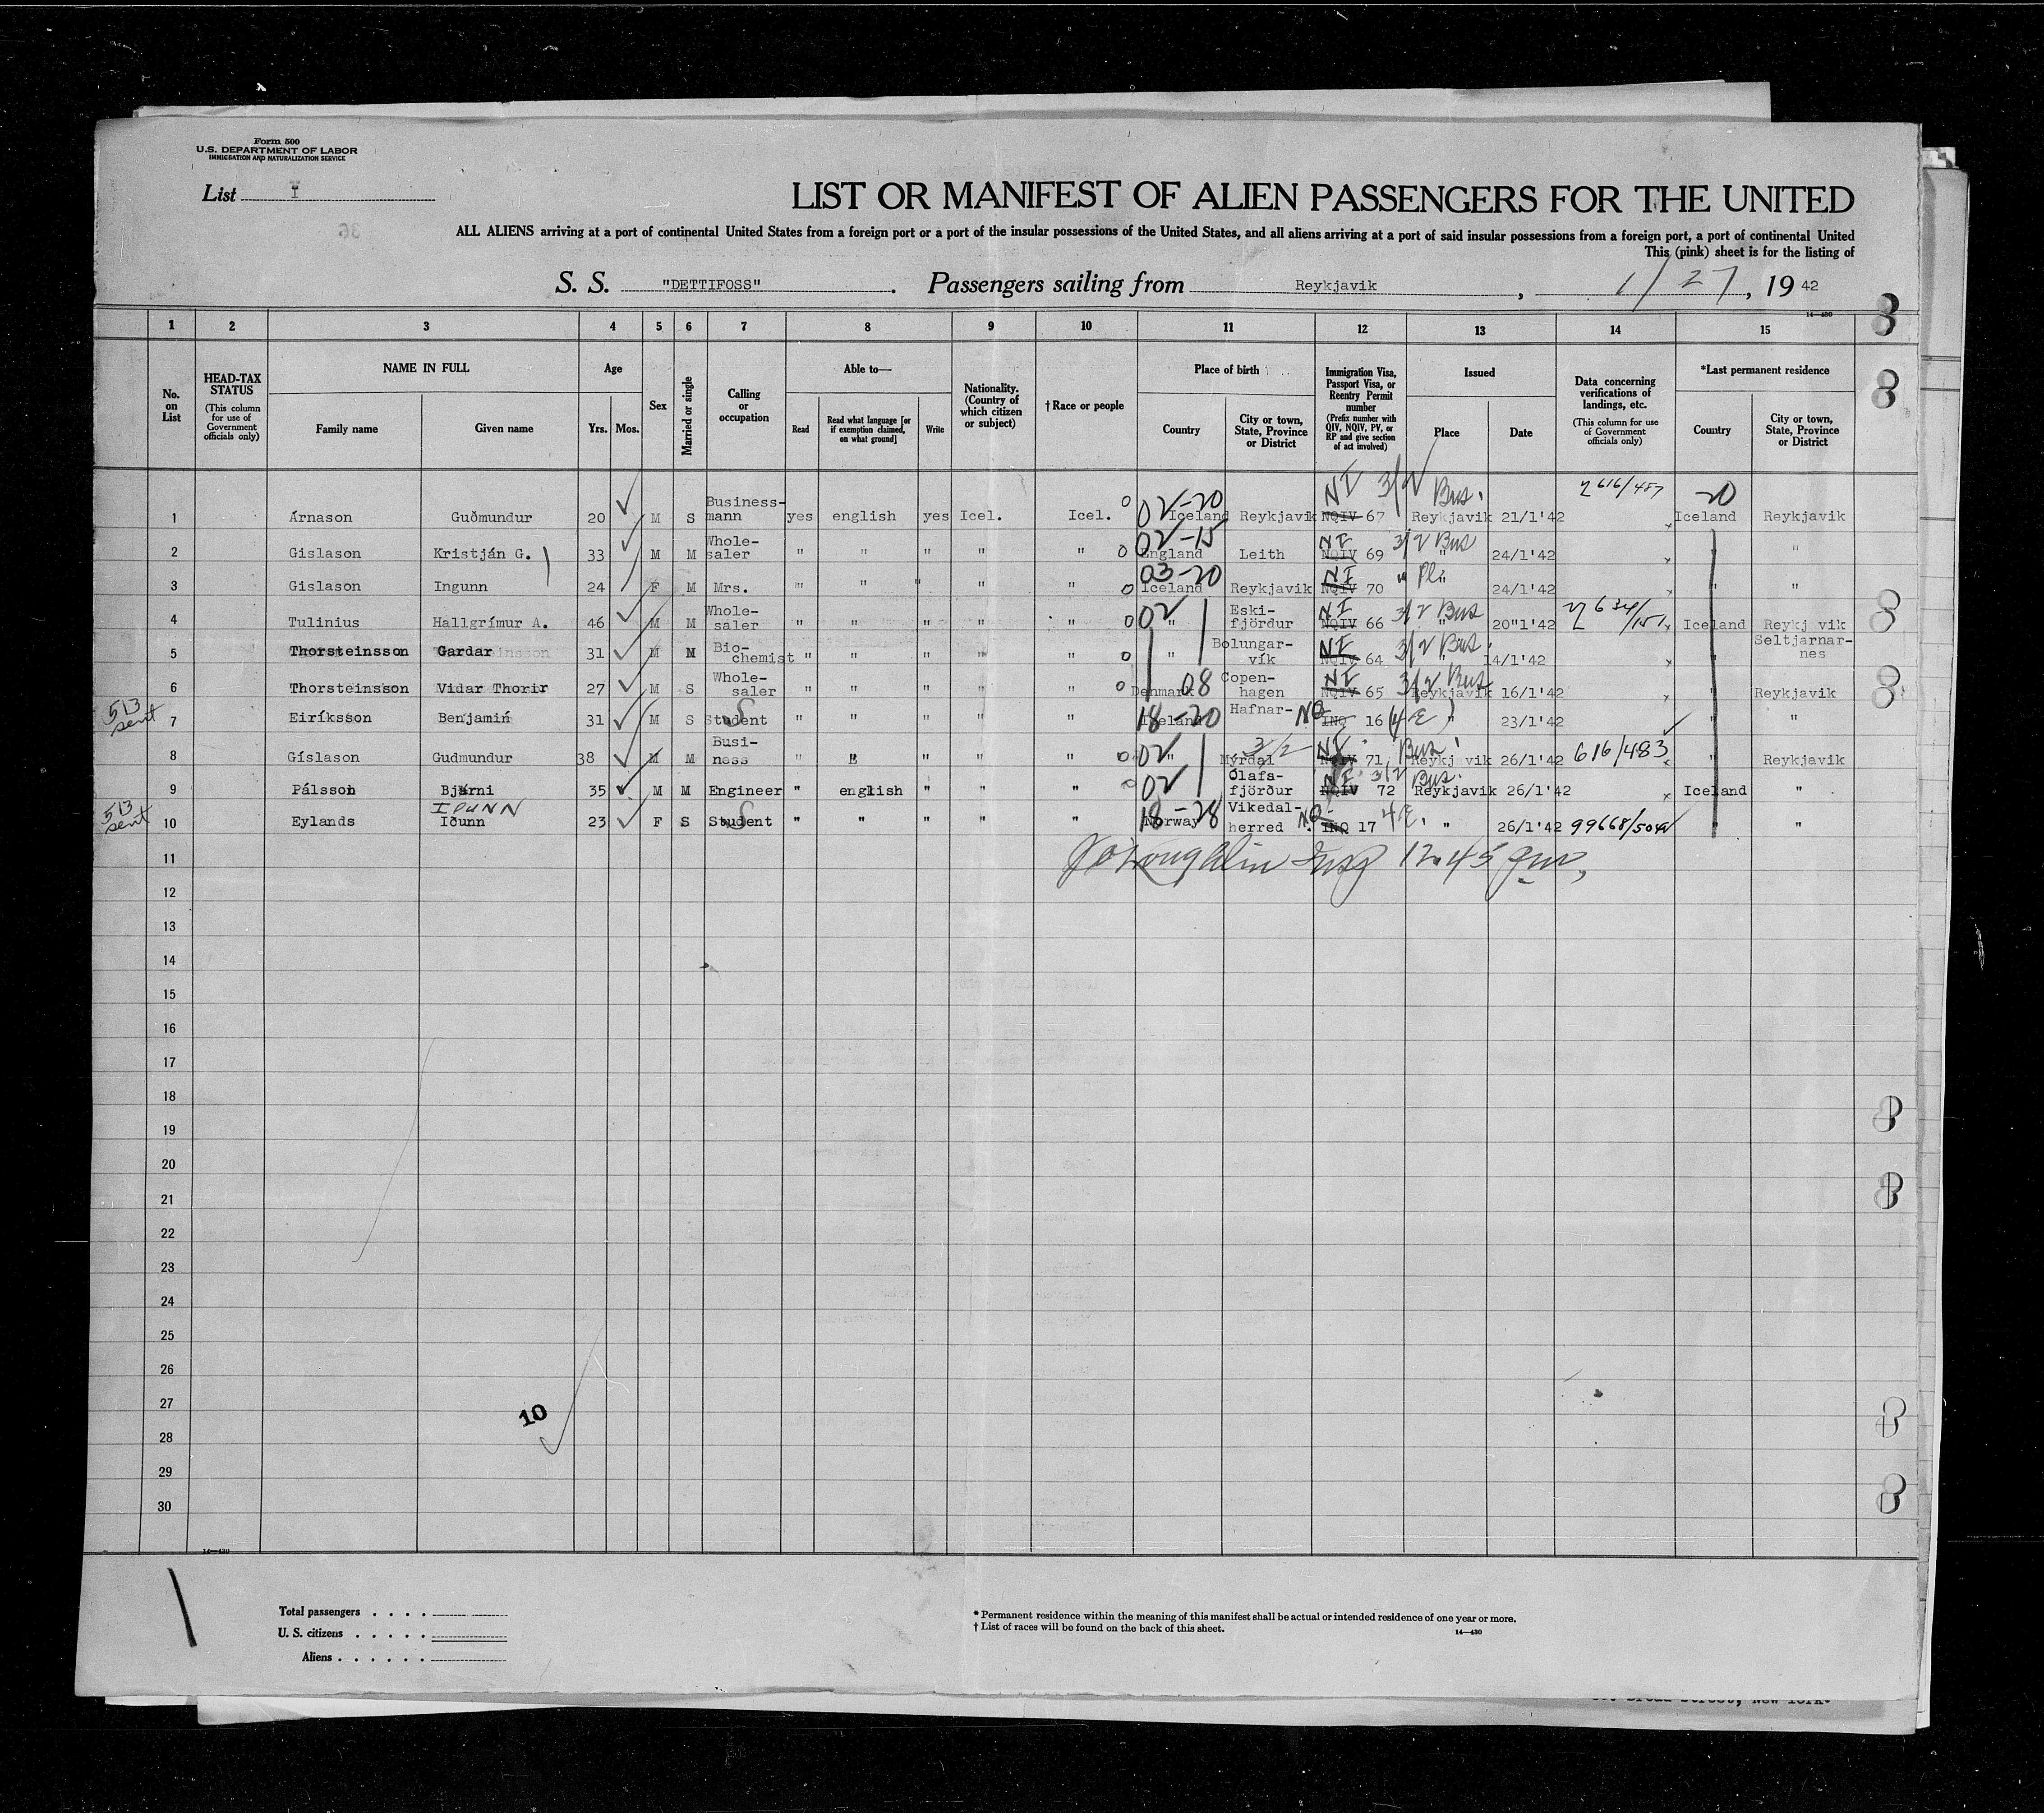 Form 500
U.S. DEPARTMENT OF LABOR
IMMIGRATION AND NATURALIZATION SERVICE
List I
LIST OR MANIFEST OF ALIEN PASSENGERS FOR THE UNITED
ALL ALIENS arriving at a port of continental United States from a foreign port or a port of the insular possessions of the United States, and all aliens arriving at a port of said insular possessions from a foreign port, a port of continental United
This (pink) sheet is for the listing of
S. S. "DETTIFOSS". Passengers sailing from Reykjavik, 1/27, 19 42
14—430
1 2 3 4 5 6 7 8 9 10 11 12 13 14 15
No. on List
HEAD-TAX STATUS
(This column for use of Government officials only)
NAME IN FULL
Family name Given name
Age
Yrs. Mos.
Sex
Married or single
Calling or occupation
Able to—
Read
Read what language [or if exemption claimed, on what ground]
Write
Nationality. (Country of which citizen or subject)
† Race or people
Place of birth
Country
City or town, State, Province or District
Immigration Visa, Passport Visa, or Reentry Permit number
(Prefix number with QIV, NQIV, PV, or RP and give section of act involved)
Issued
Place Date
Data concerning verifications of landings, etc.
(This column for use of Government officials only)
*Last permanent residence
Country
City or town, State, Province or District
NI 3/2 Bus. 616/487
02-20 20
1 Árnason Guðmundur 20 M S Business-mann yes english yes Icel. Icel. Iceland Reykjavik NQIV 67 Reykjavik 21/1'42 Iceland Reykjavik
02-15 NI 3/2 Bus
2 Gislason Kristján G. 33 M M Whole-saler " " " " " England Leith NQIV 69 " 24/1'42 " "
03-20 NI " Pl
3 Gislason Ingunn 24 F M Mrs. " " " " " Iceland Reykjavik NQIV 70 " 24/1'42 " "
02 NI 3/2 Bus 634/151
4 Tulinius Hallgrímur A. 46 M M Whole-saler " " " " " " Eski-fjördur NQIV 66 " 20"1'42 Iceland Reykj vik
NI 3/2 Bus.
5 Thorsteinsson Gardar 31 M M Bio-chemist " " " " " " Bolungar-vík NQIV 64 " 14/1'42 " Seltjarnar-nes
08 NI 3/2 Bus
6 Thorsteinsson Vidar Thorir 27 M S Whole-saler " " " " " Denmark Copen-hagen NQIV 65 Reykjavik 16/1'42 " Reykjavik
513 sent
18-20 NQ 4E
7 Eiríksson Benjamin 31 M S Student " " " " " Iceland Hafnar- INQ 16 " 23/1'42 " "
02 3/2 NI Bus 616/483
8 Gíslason Gudmundur 38 M M Busi-ness " " " " " " Mýrdal NQIV 71 Reykj vik 26/1'42 " Reykjavik
02 NI 3/2 Bus.
9 Pálsson Bjarni 35 M M Engineer " english " " " Ólafs-fjörður NQIV 72 Reykjavik 26/1'42 Iceland "
513 sent
IDUNN
18-28 NQ 4E 99668/504
10 Eylands Iðunn 23 F S Student " " " " " Norway Vikedal-herred INQ 17 " 26/1'42 " "
11 12.45 pm,
12
13
14
15
16
17
18
19
20
21
22
23
24
25
26
27
10
28
29
30
14—430
Total passengers
U. S. citizens
Aliens
* Permanent residence within the meaning of this manifest shall be actual or intended residence of one year or more.
† List of races will be found on the back of this sheet.
14—430